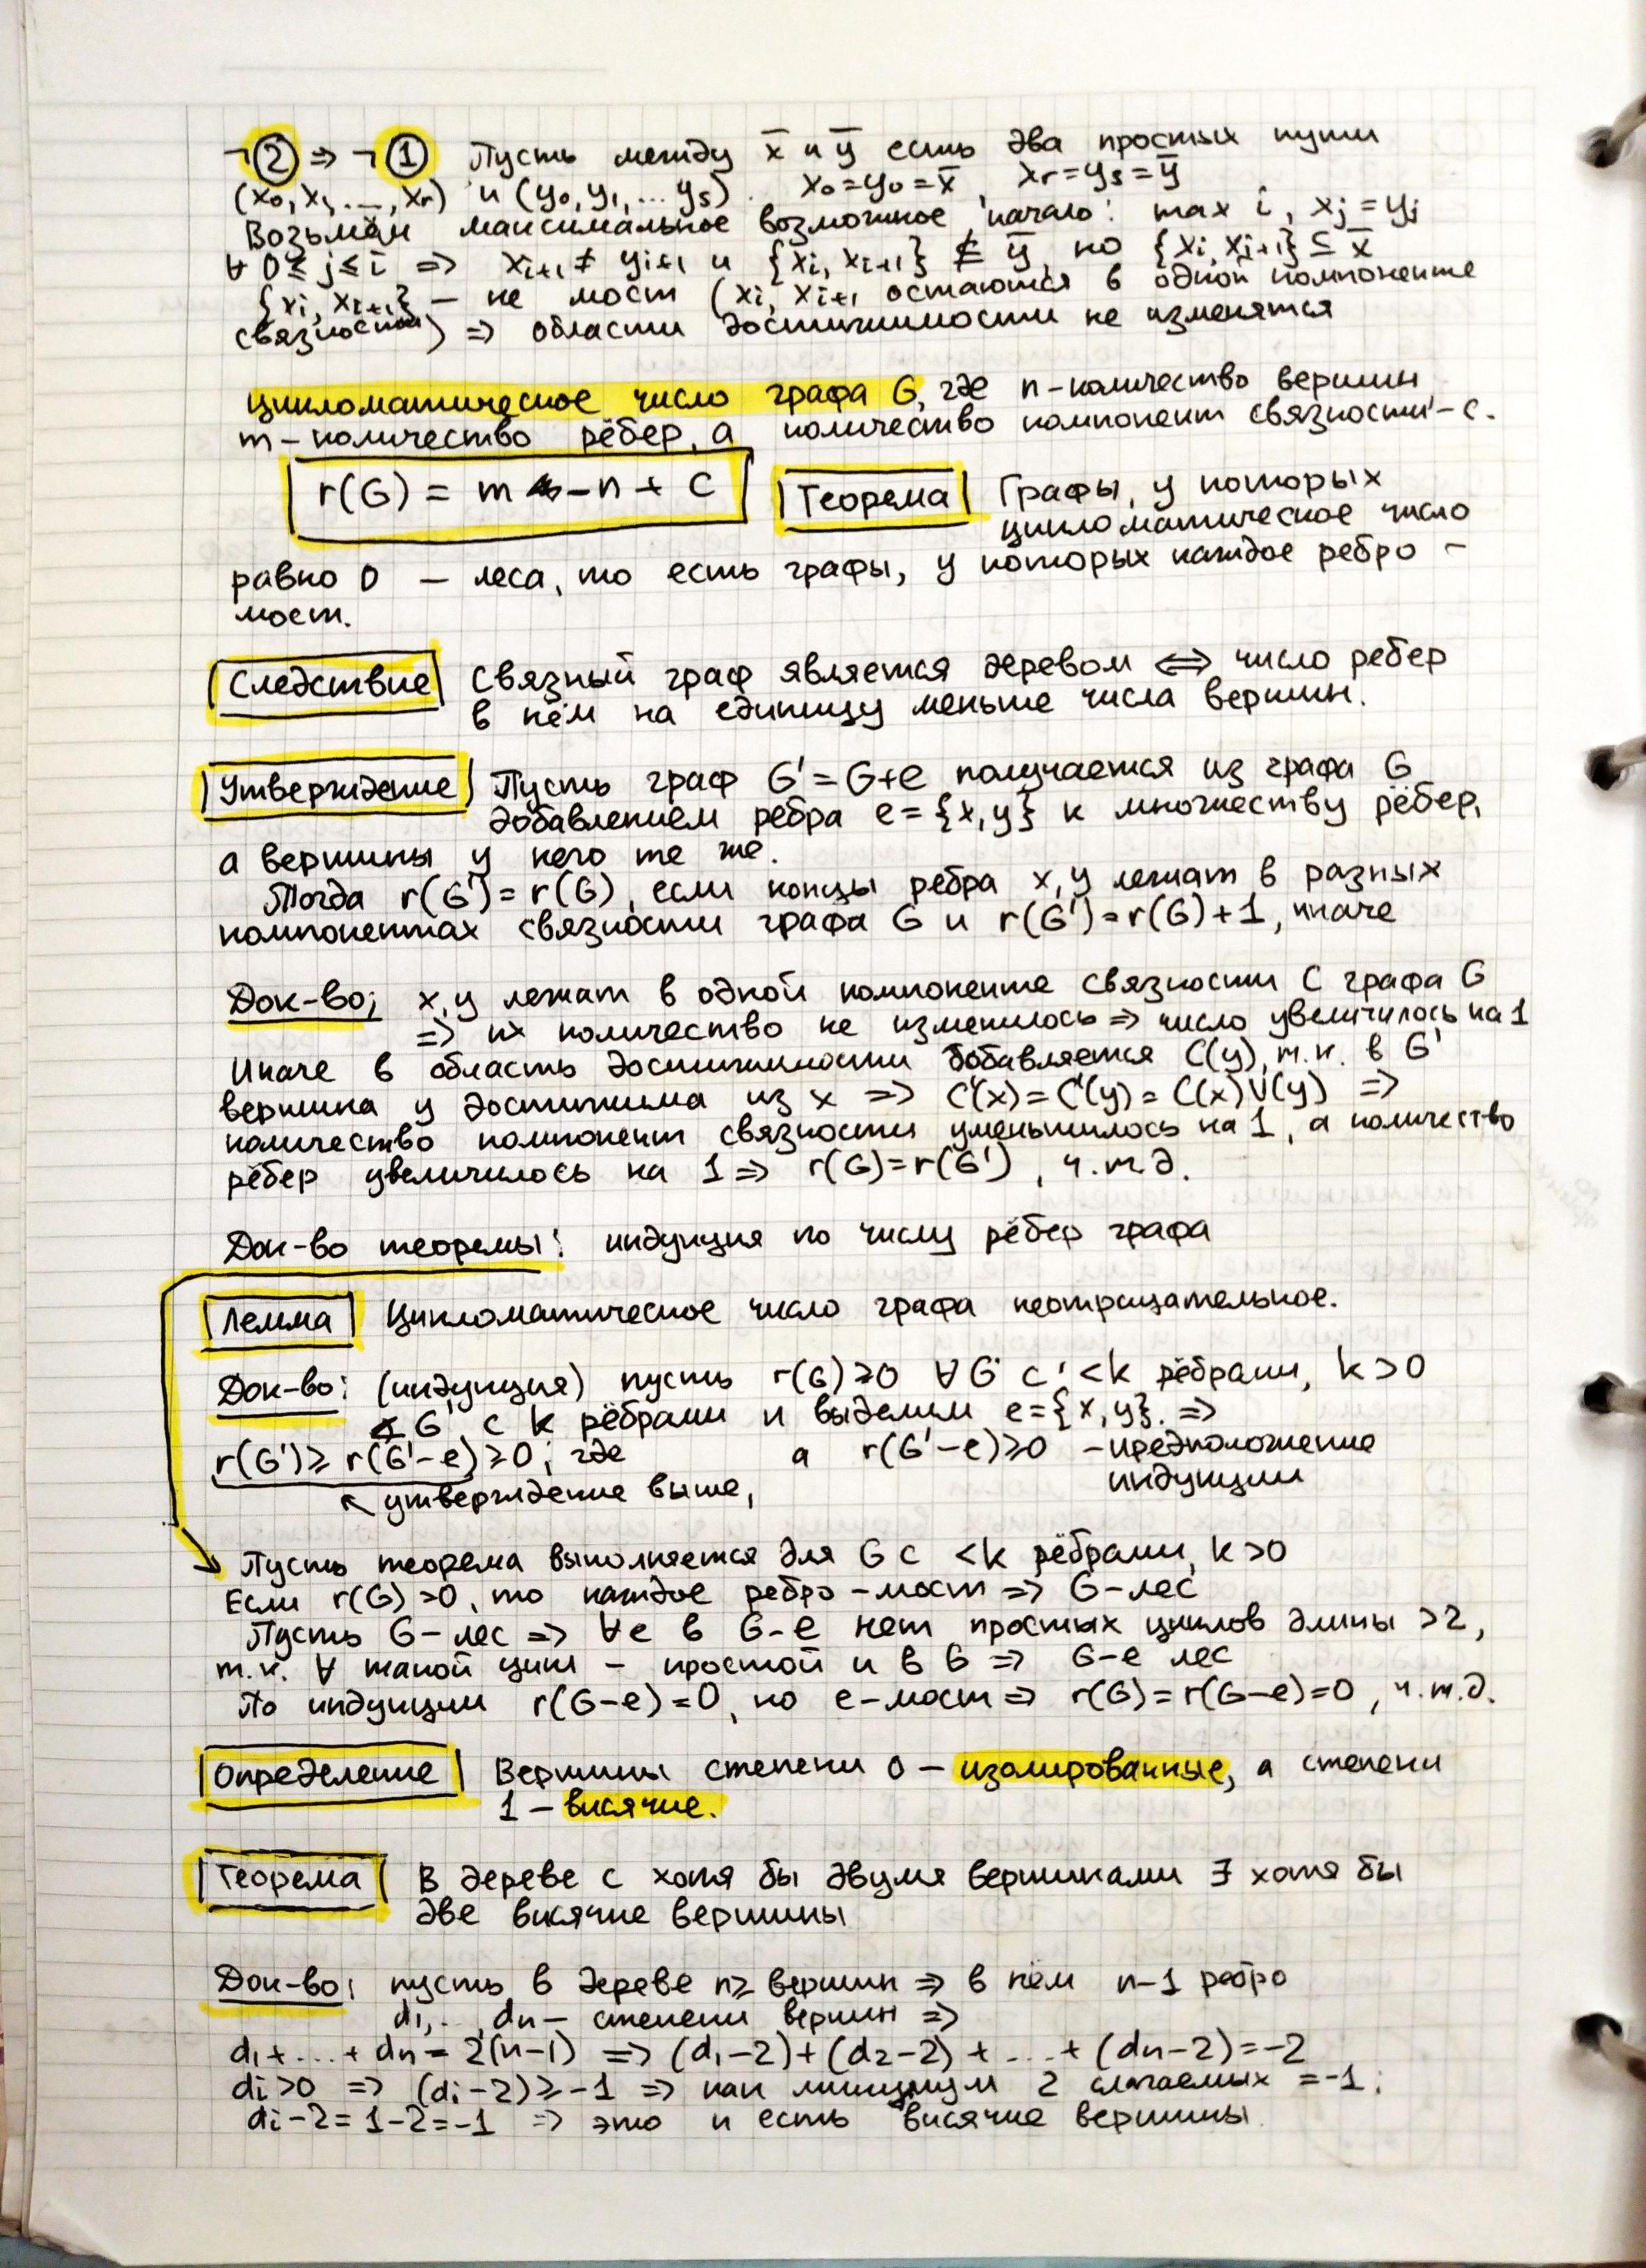 ¬② ⇒ ¬① Пусть между x̅ и y̅ есть два простых пути
(x₀, x₁, ..., xᵣ) и (y₀, y₁, ... yₛ). x₀=y₀=x̅, xᵣ=yₛ=y̅
Возьмём максимальное возможное начало: max i, xⱼ=yⱼ
∀ 0≤j≤i ⇒ xᵢ₊₁≠yᵢ₊₁ и {xᵢ, xᵢ₊₁} ⊈ y̅, но {xᵢ, xᵢ₊₁} ⊆ x̅
{xᵢ, xᵢ₊₁} – не мост (xᵢ, xᵢ₊₁ остаются в одной компоненте
связности) ⇒ области достижимости не изменятся
Цикломатическое число графа G, где n-количество вершин
m-количество рёбер, а количество компонент связности-c.
r(G) = m - n + c
Теорема Графы, у которых
цикломатическое число
равно 0 – леса, то есть графы, у которых каждое ребро –
мост.
Следствие Связный граф является деревом ⟺ число ребер
в нём на единицу меньше числа вершин.
Утверждение Пусть граф G'=G+e получается из графа G
добавлением ребра e={x,y} к множеству рёбер,
а вершины у него те же.
Тогда r(G')=r(G), если концы ребра x,y лежат в разных
компонентах связности графа G и r(G')=r(G)+1, иначе
Док-во: x,y лежат в одной компоненте связности C графа G
⇒ их количество не изменилось ⇒ число увеличилось на 1
Иначе в область достижимости добавляется C(y), т.к. в G'
вершина y достижима из x ⇒ C'(x)=C'(y)=C(x)∪(y) ⇒
количество компонент связности уменьшилось на 1, а количество
рёбер увеличилось на 1 ⇒ r(G)=r(G'), ч.т.д.
Док-во теоремы: индукция по числу рёбер графа
Лемма Цикломатическое число графа неотрицательное.
Док-во: (индукция) пусть r(G)≥0 ∀G с <k рёбрами, k>0
∢ G' с k рёбрами и выделим e={x,y}. ⇒
r(G')≥r(G'-e)≥0; где а r(G'-e)≥0 – предположение
индукции
↖ утверждение выше,
Пусть теорема выполняется для G с <k рёбрами, k>0
Если r(G)>0, то каждое ребро – мост ⇒ G-лес
Пусть G-лес ⇒ ∀e в G-e нет простых циклов длины >2,
т.к. ∀ такой цикл – простой и в G ⇒ G-e лес
По индукции r(G-e)=0, но e-мост ⇒ r(G)=r(G-e)=0, ч.т.д.
Определение Вершины степени 0 – изолированные, а степени
1 – висячие.
Теорема В дереве с хотя бы двумя вершинами ∃ хотя бы
две висячие вершины
Док-во: пусть в дереве n≥ вершин ⇒ в нём n-1 ребро
d₁, ..., dₙ – степени вершин ⇒
d₁+...+dₙ = 2(n-1) ⇒ (d₁-2)+(d₂-2)+...+(dₙ-2)=-2
dᵢ>0 ⇒ (dᵢ-2)≥-1 ⇒ как минимум 2 слагаемых =-1;
dᵢ-2=1-2=-1 ⇒ это и есть висячие вершины.